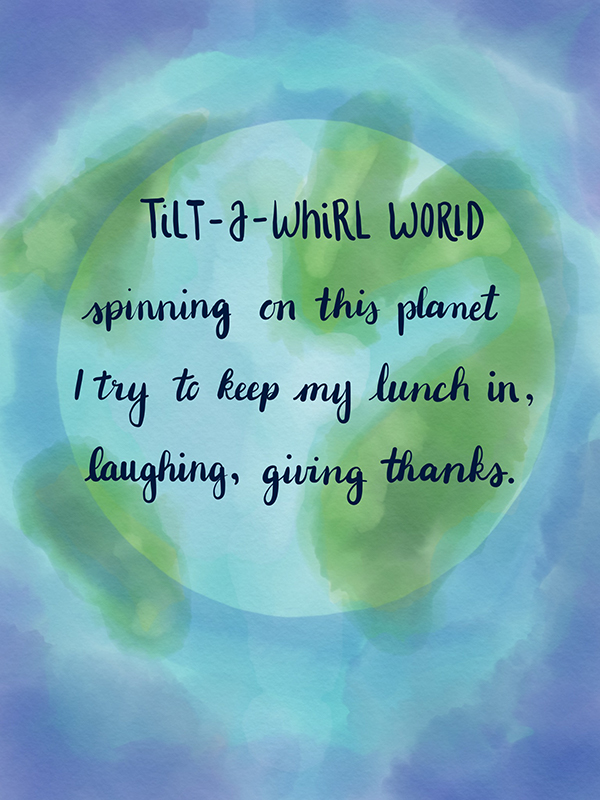 TiLT-a-WhiRL WORLD
spinning on this planet
I try to keep my lunch in,
laughing, giving thanks.